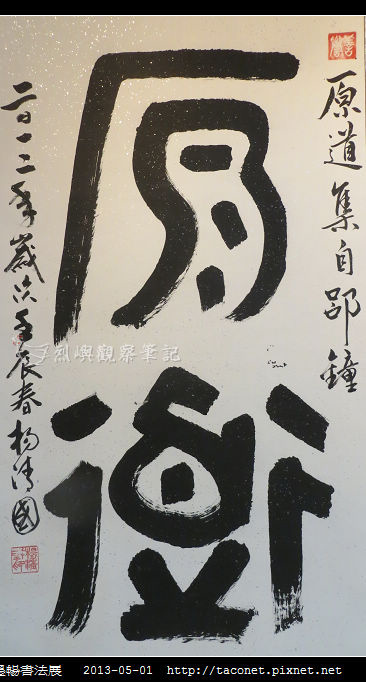 原道集自郘鐘
原道
二〇一二年歲次壬辰春楊清國
烈嶼觀察筆記
墨暢書法展 2013-05-01 http://taconet.pixnet.net